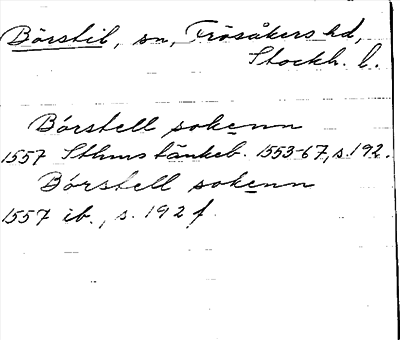 Börstil, sn, Frösåkers hd,
Stockh. l.
Börstell sokenn
1557 Sthms tänkeb. 1553-67, s. 192.
Börstell sokenn
1557 ib., s. 192 f.